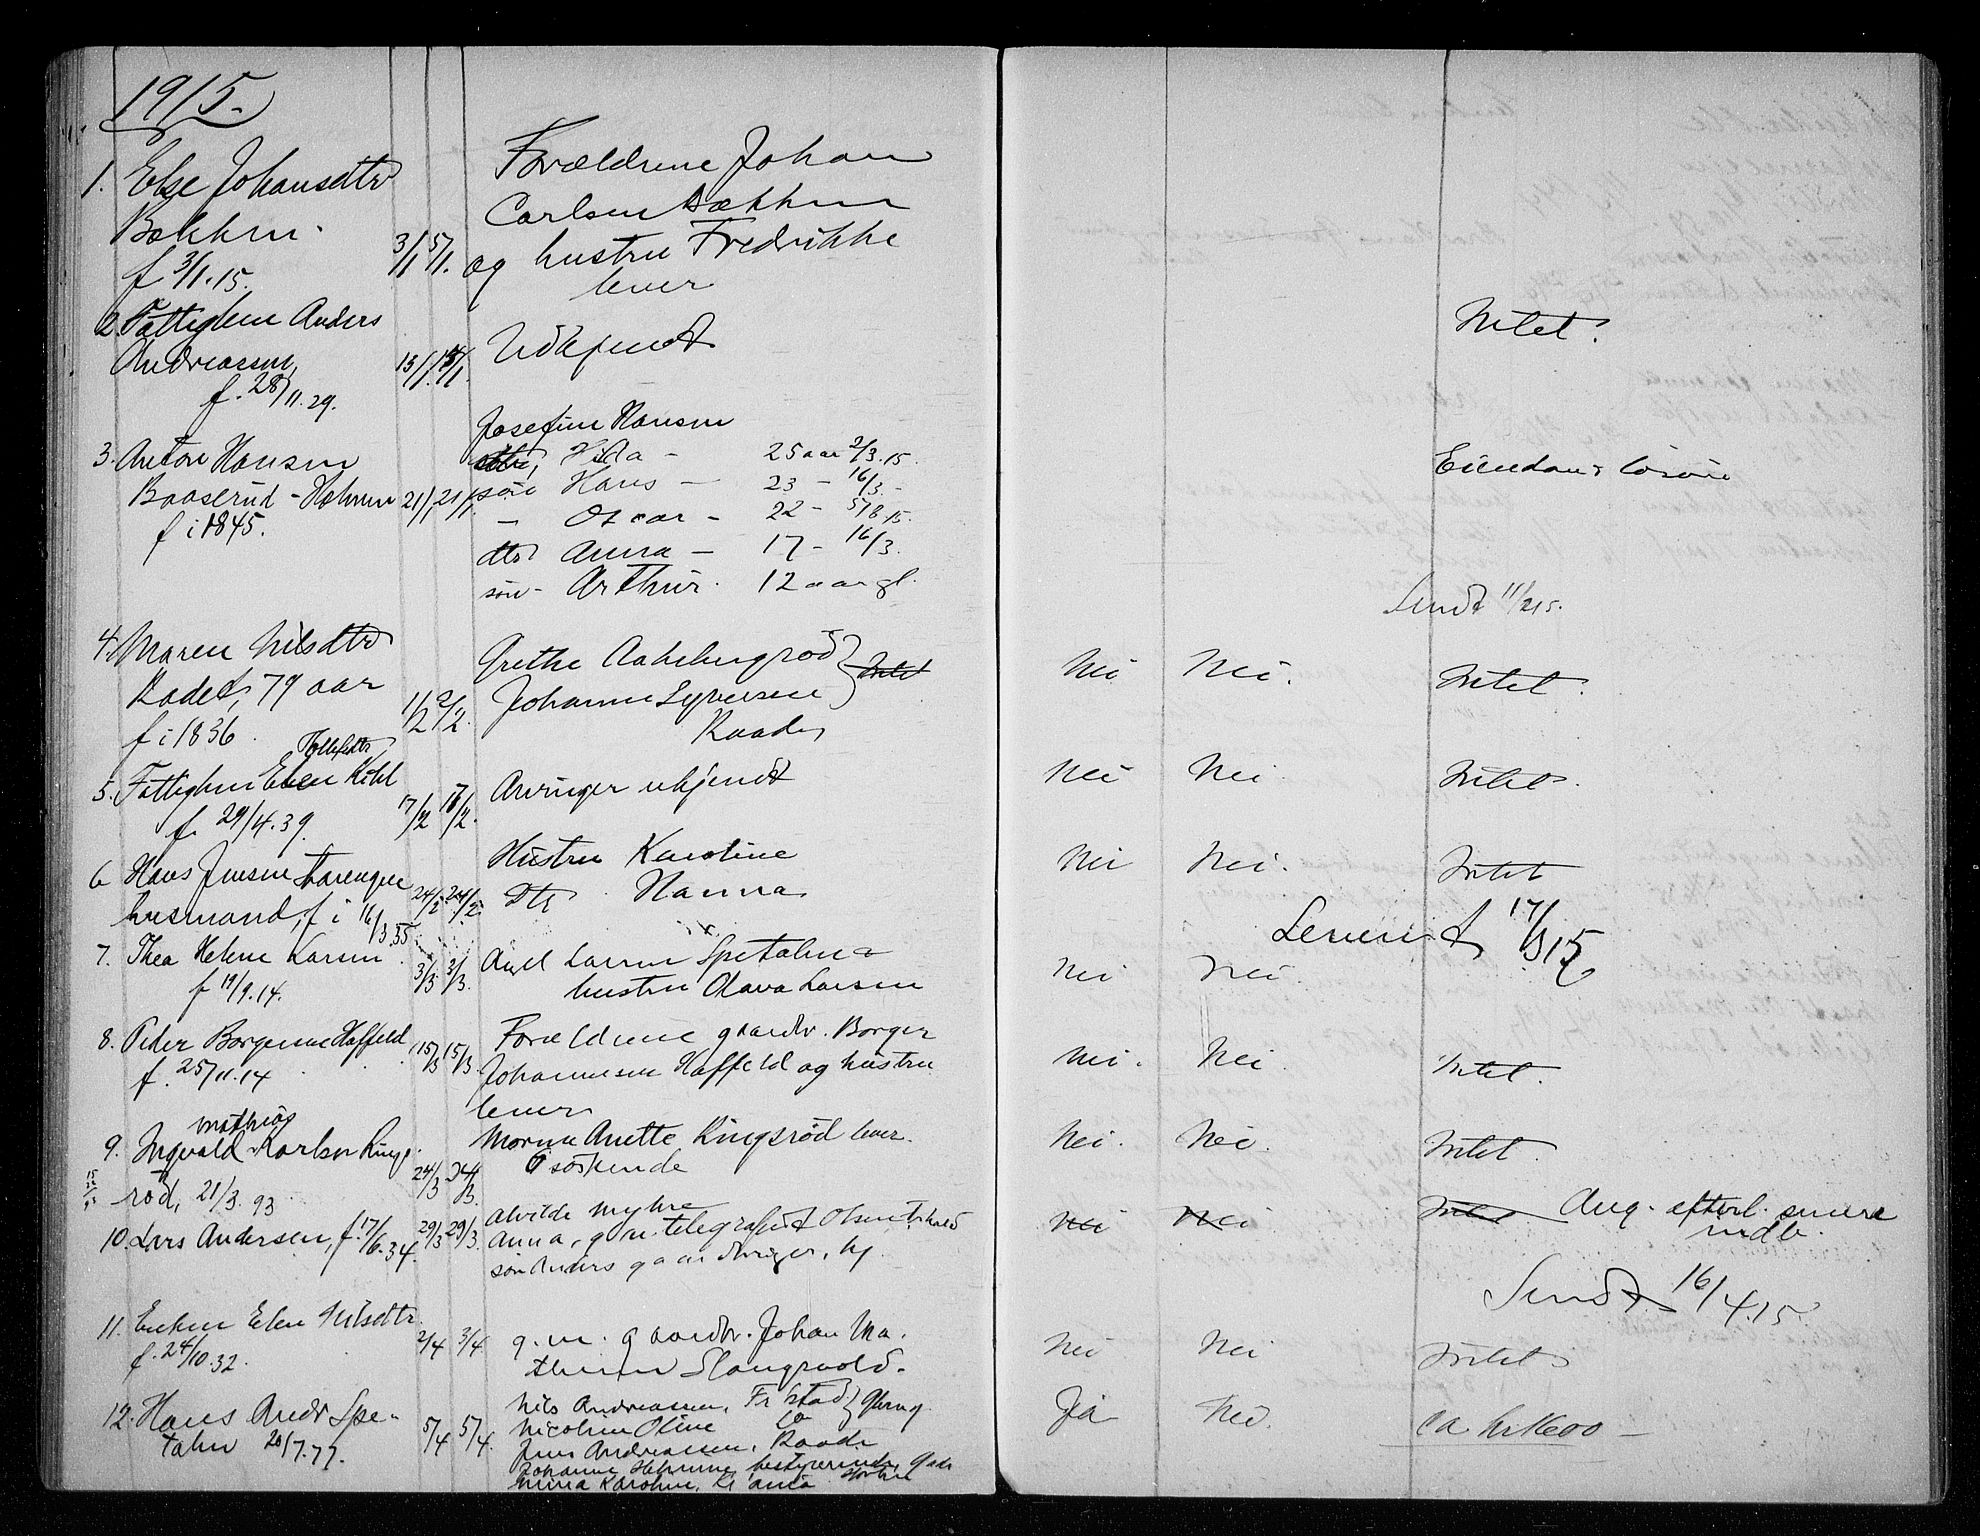 1915.
1. Else Johansdtr
Bækken
f 3/1.15.
3/1 5/1.
Forældrene Johan
Carlsen Bækken
og hustru Fredrikke
lever
2 Fattiglem Anders
Andreassen,
f. 28/11.29.
13/1. 15/1.
Udkjendt
Intet.
3. Anton Hansen
Baaserud - Holmen
f i 1845.
21/1 21/1
Josefine Hansen
dtr, Hilda - 25 aar 2/3.15.
søn Hans - 23 - 16/3 -
- Oscar - 22 - 5/8 15.
dtr Anna - 17 - 16/3.
søn - Arthur. 12 aar gl.
Eiendom & løsøre
Sendt 11/2 15.
4. Maren Nilsdtr
Kadet, 79 aar
f i 1836.
1/2 2/2.
Grethe
Johanne Syversen
Raade
Intet
Nei Nei. Intet.
5. Fattiglem Elen Tollefsdtr Kihl
f. 29/4.39.
17/2 18/2.
Arvinger ukjendt
Nei Nei Intet.
6 Hans Jensen
husmand, f i 16/3.35
24/2. 24/2.
Hustru Karoline
Dtr Hanna
Nei Nei. Intet
Leveret 17/3 15
7. Thea Helene Larsen
f 19/9.14.
3/3 3/3.
Axel Larsen Spetalen &
hustru Olava Larsen
Nei Nei.
8. Peder Borgersen Haffeld
f. 25/11.14
15/3 15/3.
Forældrene gaardbr. Borger
Johannesen Haffeld og hustru
lever
Nei. Nei. Intet.
9. Ingvald Mathias Karlsen Kings-
rød, 21/3.93
24/3 24/3.
Moren Anette Kingsrød lever.
6 søskende
Nei. Nei. Intet.
10. Lars Andersen, f. 17/6.34.
29/3 29/3.
Alvilde Myhre
Anna, g. m. telegrafist Olsen
søn Anders
Nei Nei Intet Ang. efterl. senere
indb.
Sendt 16/4.15.
11. Enken Elen Nilsdtr.
f. 24/10.32.
2/4 3/4
g. m. gaardbr. Johan Ma-
thisen Slangsvold.
Nei Nei Intet
12. Hans Andr Spe-
talen 20/7.77.
5/4 5/4.
Nils Andreassen, Fr.stad
Nicoline Oline do
Jens Andreassen, Raade
Johanne Helmine, bestyrerinde,
Minna Karoline, Kr.ania
Ja Nei. ca kr 1600 -